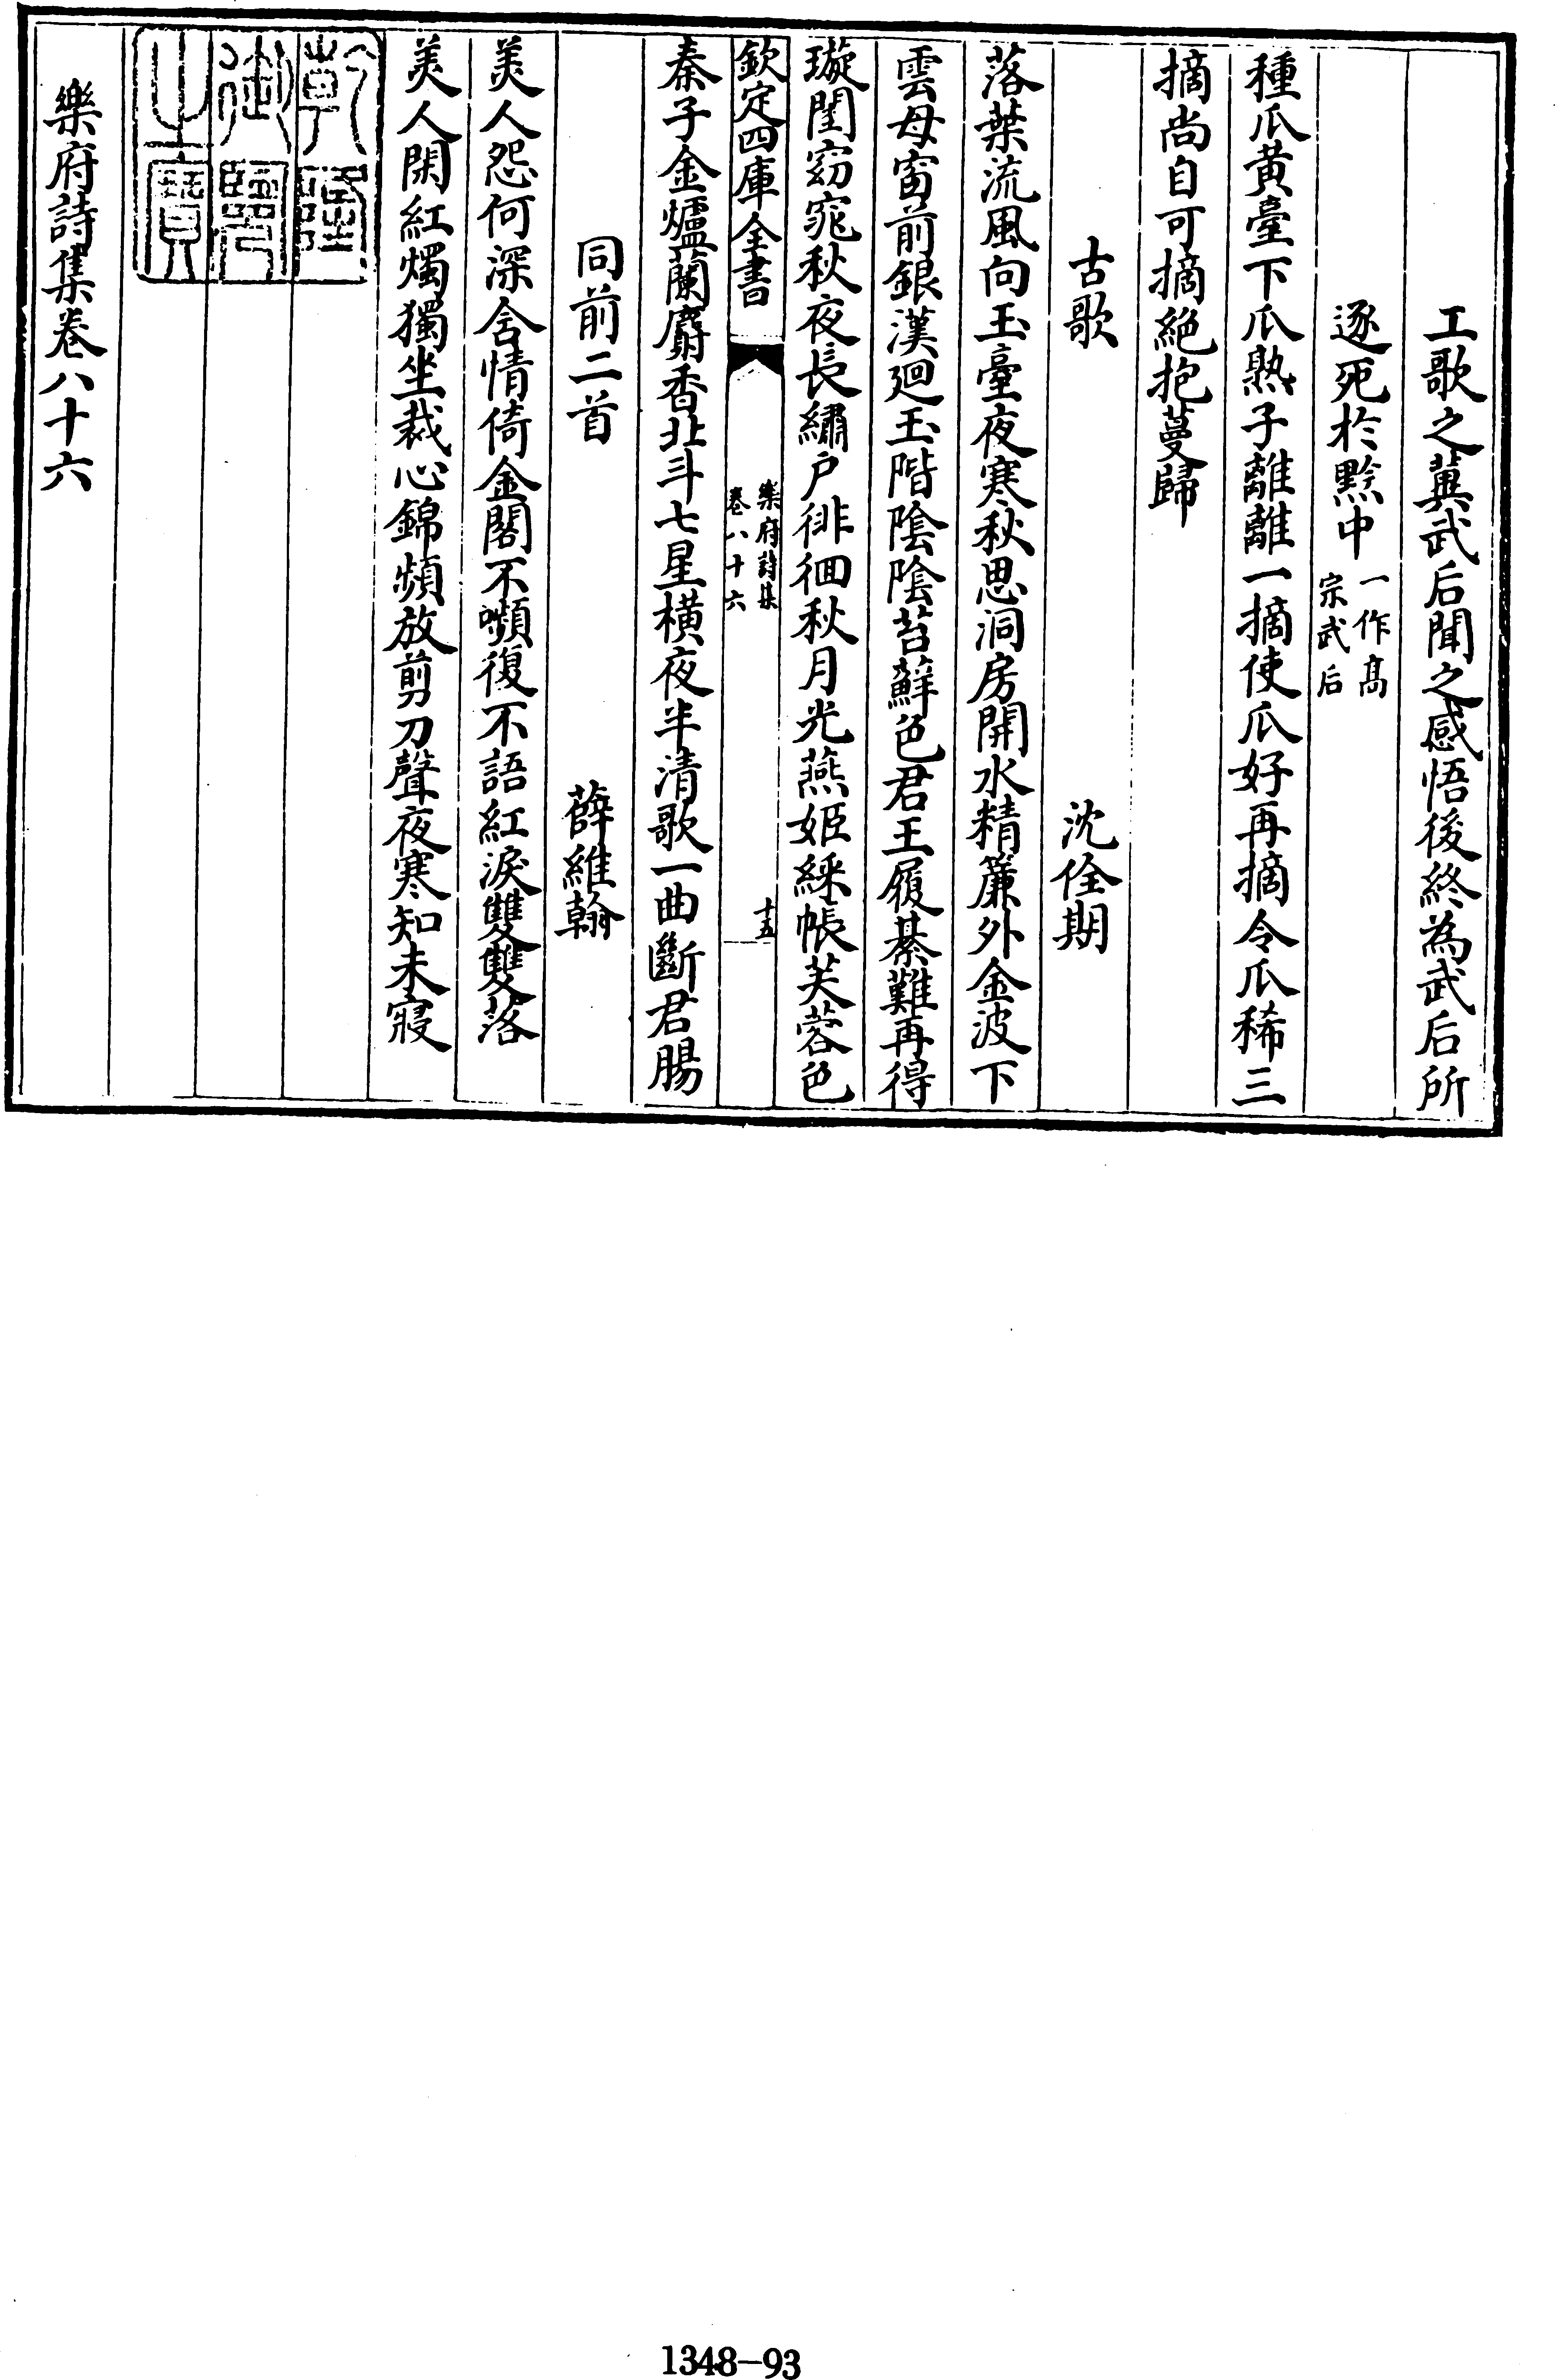 工歌之冀武后聞之感悟後終為武后所
逐死於黔中一作髙宗武后
種瓜黄臺下瓜熟子離離一摘使瓜好再摘令瓜稀三
摘尚自可摘絶抱蔓歸
古歌 沈佺期
落葉流風向玉臺夜寒秋思洞房開水精簾外金波下
雲母窗前銀漢廻玉階陰陰苔蘚色君王履綦難再得
璇閨窈窕秋夜長繡户徘徊秋月光燕姬綵帳芙蓉色
欽定四庫全書 樂府詩集卷八十六 十五
秦子金爐蘭麝香北斗七星横夜半清歌一曲斷君腸
同前二首 薛維翰
美人怨何深含情倚金閣不嚬復不語紅淚雙雙落
美人閑紅燭獨坐裁心錦頻放剪刀聲夜寒知未寢
乾隆御覽之寶
樂府詩集卷八十六
1348-93